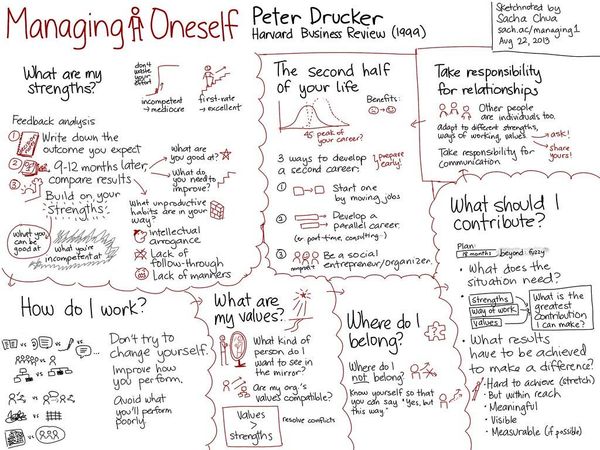 Managing Oneself
Peter Drucker
Harvard Business Review (1999)
Sketchnoted by
Sacha Chua
sach.ac/managing1
Aug 22, 2013
What are my
strengths?
don't
waste
your
effort
incompetent
→ mediocre
first-rate
→ excellent
Feedback analysis
1 Write down the
outcome you expect
2 9-12 months later,
compare results
3 Build on your
strengths
What are
you good at?
What do
you need to
improve?
What unproductive
habits are in your
way?
Intellectual
arrogance
Lack of
follow-through
Lack of manners
what you
can be
good at
what you're
incompetent at
The second half
of your life
Benefits:
45 peak of
your career?
3 ways to develop
a second career:
prepare
early!
1 Start one
by moving jobs
2 Develop a
parallel career.
(or part-time, consulting...)
3 Be a social
entrepreneur/organizer.
nonprofit
Take responsibility
for relationships
Other people
are individuals too.
adapt to different strengths,
ways of working, values.
→ ask!
Take responsibility for
communication.
→ share
yours!
What should I
contribute?
Plan:
18 months
beyond: fuzzy
• What does the
situation need?
strengths
way of work
values
What is the
greatest
contribution
I can make?
• What results
have to be achieved
to make a difference?
• Hard to achieve (stretch)
• But within reach
• Meaningful
• Visible
• Measurable (if possible)
How do I work?
vs
vs
vs
...
vs
vs
vs
vs
Don't try to
change yourself.
Improve how
you perform.
Avoid what
you'll perform
poorly.
What are
my values?
What kind of
person do I
want to see in
the mirror?
Are my org.'s
values compatible?
Values
>
strengths
resolve conflicts
Where do I
belong?
Where do I
not belong?
Know yourself so that
you can say "Yes, but
this way."